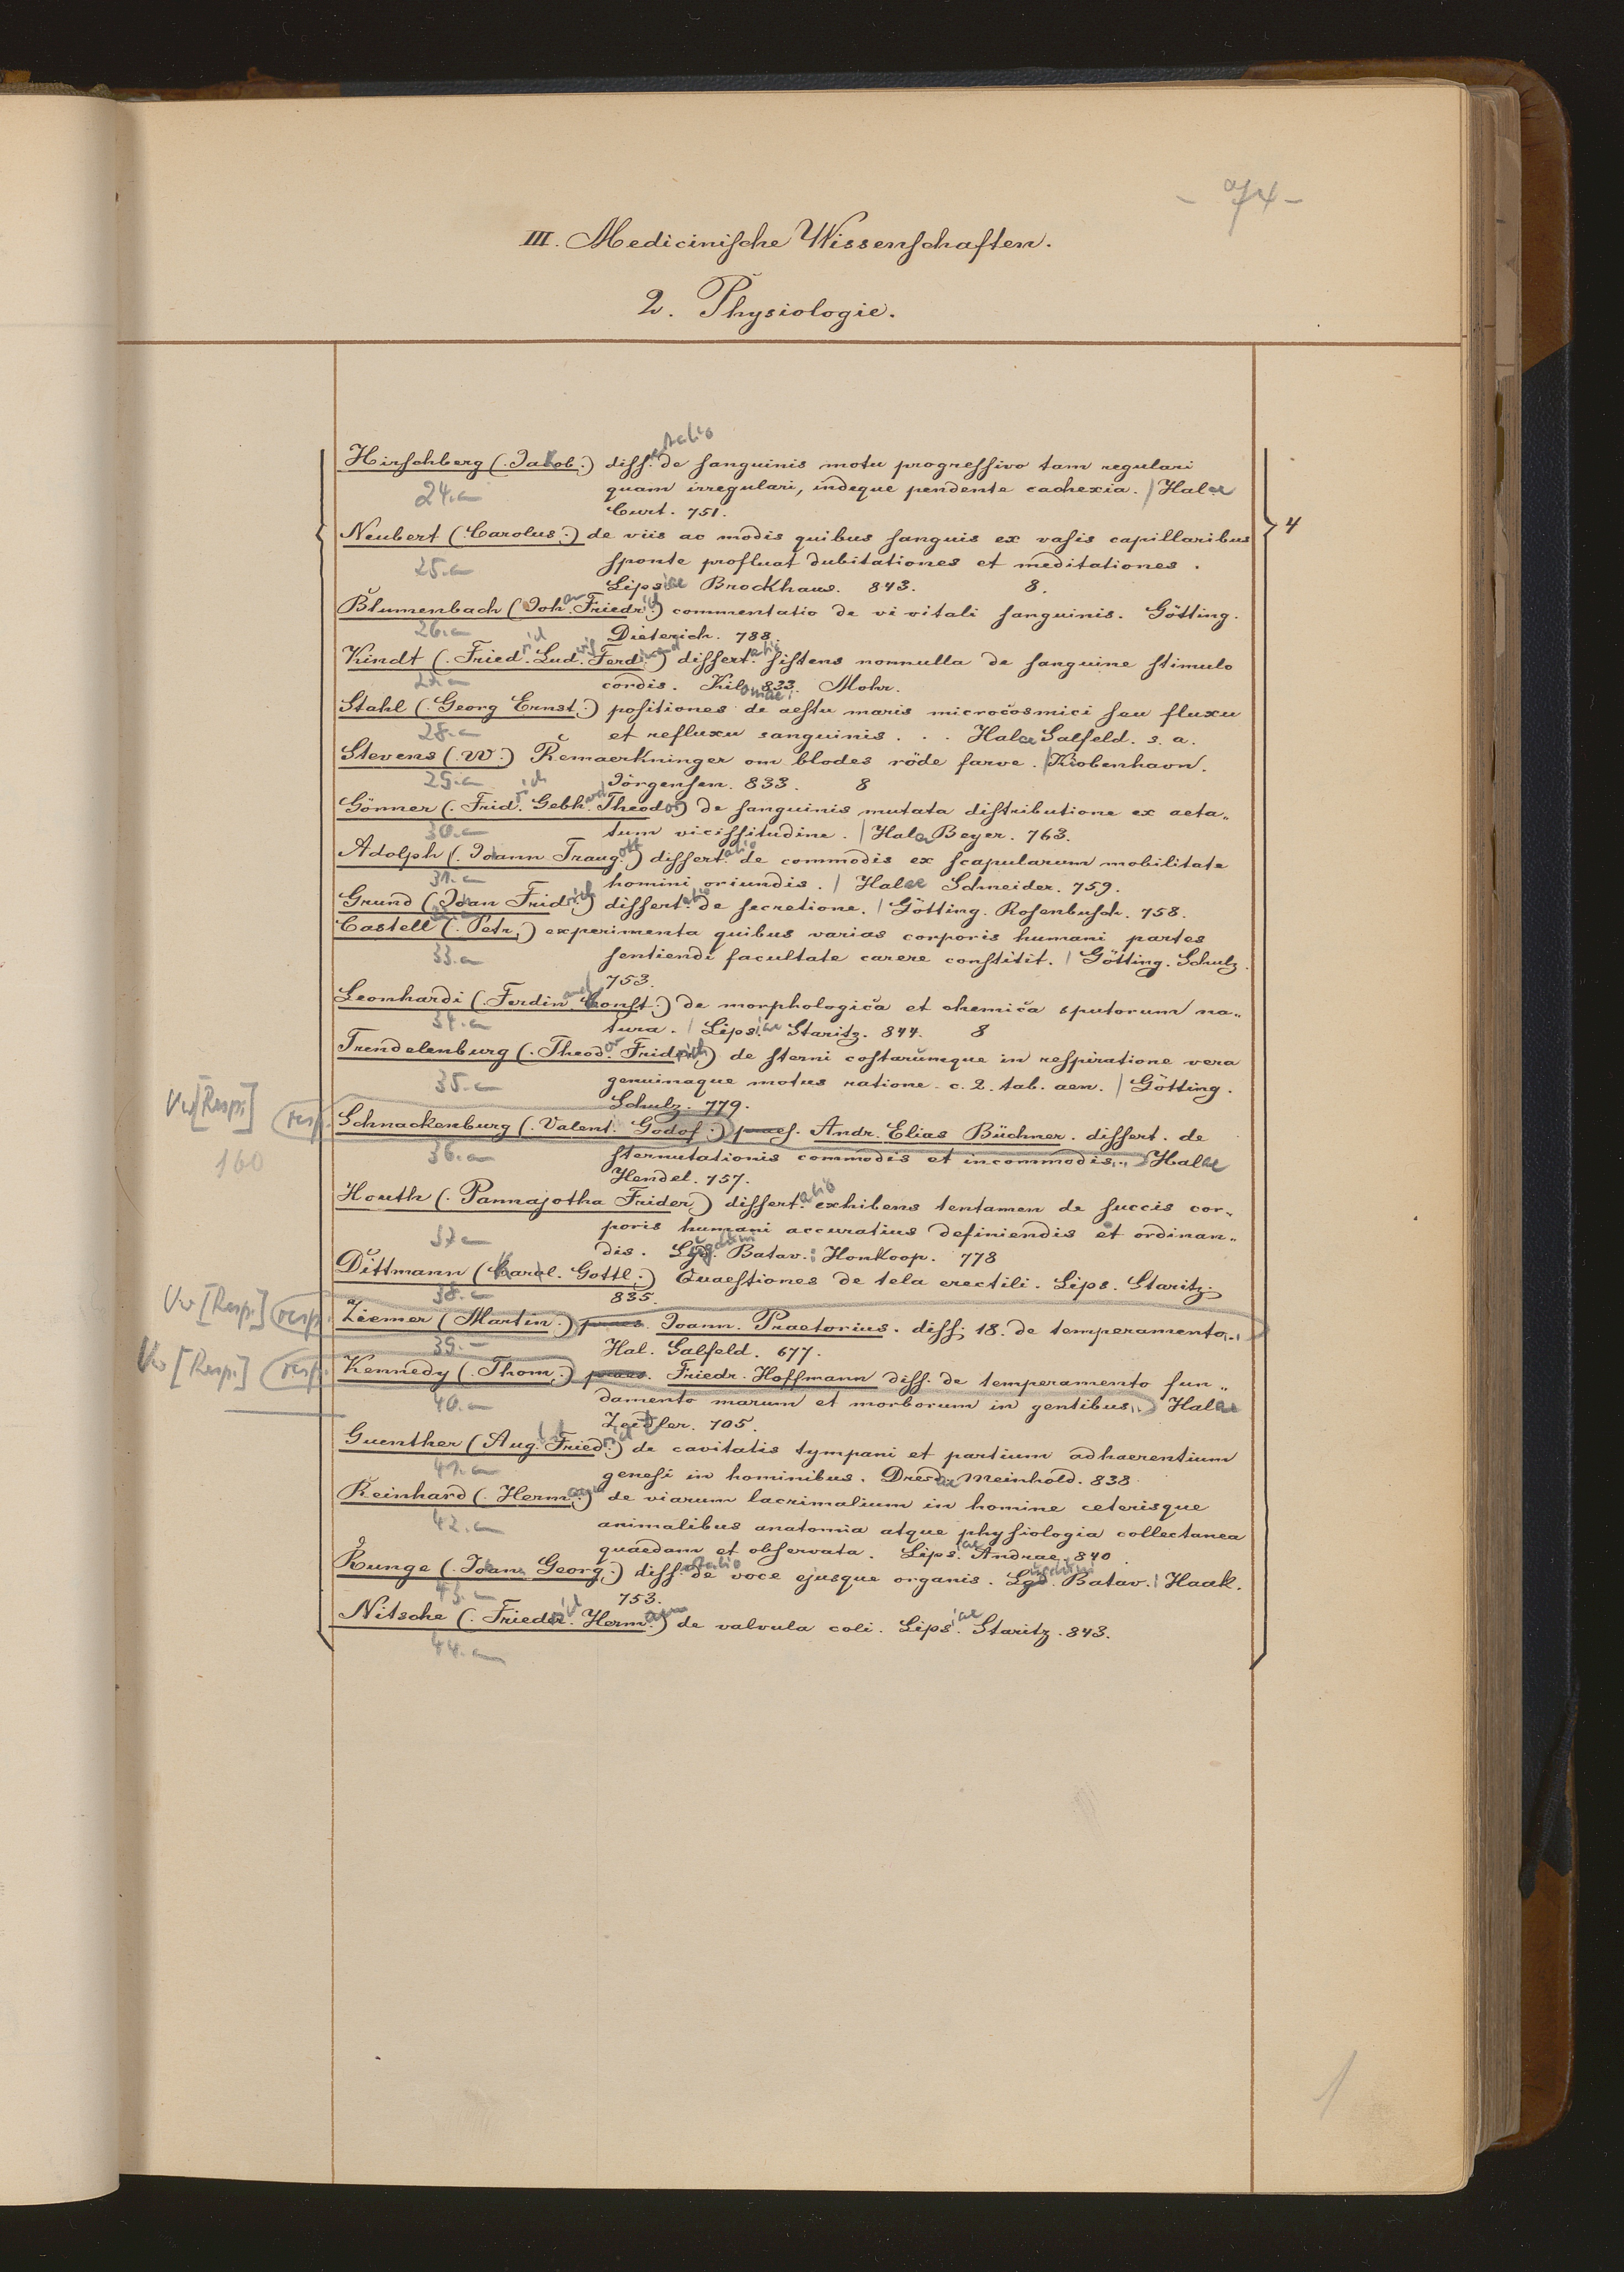 - 74 -
III. Medicinische Wissenschaften.
2. Physiologie.
Hirschberg (. Jakob.) diss.ertatio de sanguinis motu progressivo tam regulari
24.a quam irregulari, indeque pendente cachexia. / Halae
Curt. 751.
4
Neubert (. Carolus.) de viis ac modis quibus sanguis ex vasis capillaribus
25.a sponte profluat dubitationes et meditationes.
Lipsiae Brockhaus. 843. 8.
Blumenbach (Joh.an Friedr.ich) commentatio de vi vitali sanguinis. Götting.
26.a Dieterich. 788.
Kindt (. Fried.rich Lud.wig Ferd.inand) dissert.atio sistens nonnulla de sanguine stimulo
27.a cordis. Kil. 833. Mohr.
Stahl (. Georg Ernst.) positiones de aestu maris microcosmici seu fluxu
28.a et refluxu sanguinis . . . Halae Salfeld. s. a.
Stevens (. W.) Remaerkninger om blodes röde farve. / Kiobenhavn.
29.a Jörgensen. 833. 8
Gönner (. Frid.rich Gebh.ard Theodor) de sanguinis mutata distributione ex aeta„
30.a tum vicissitudine. / Halae Beyer. 763.
Adolph (. Johann Traug.ott) dissert.atio de commodis ex scapularum mobilitate
31.a homini oriundis. / Halae Schneider. 759.
Grund (Johan Fridrich) dissert.atio de secretione. / Götting. Rosenbusch. 758.
Castell (. Petr.) experimenta quibus varias corporis humani partes
33.a sentiendi facultate carere constitit. / Götting. Schulz.
753.
Leonhardi (. Ferdin.and Konst.) de morphologica et chemica sputorum na„
34.a tura. / Lips.iae Staritz. 844. 8
Trendelenburg (. Theod.or Fridrich) de sterni costarumque in respiratione vera
35.a genuinaque motus ratione. c. 2. tab. aen. / Götting.
Schulz. 779.
Vw [Resp.] resp. Schnackenburg (. Valent. Godof.) praes. Andr. Elias Büchner. dissert. de
160 36.a sternutationis commodis et incommodis. Halae
Hendel. 757.
Houth (. Pannajotha Frider) dissert.atio exhibens tentamen de succis cor„
37.a poris humani accuratius definiendis et ordinan„
dis. Lugduni Batav.: Honkoop. 778
Dittmann (Karol. Gottl.) Quaestiones de tela erectili. Lips. Staritz
38.a 835.
Vw [Resp.] resp. Ziemer (Martin.) praes. Joann. Praetorius. diss. 18. de temperamento
39. Hal. Salfeld. 677.
Vw [Resp.] resp. Kennedy (. Thom.) praes. Friedr. Hoffmann diss. de temperamento fun„
40.a damento marum et morborum in gentibus. Halae
Zeidler. 705.
Guenther (Aug.ust Fried.rich) de cavitatis tympani et partium adhaerentium
41.a genesi in hominibus. Dresdae Meinhold. 838
Reinhard (. Herm.ann) de viarum lacrimalium in homine ceterisque
42.a animalibus anatomia atque physiologia collectanea
quaedam et observata. Lips.iae Andrae. 840.
Runge (. Johann Georg.) diss.ertatio de voce ejusque organis. Lgd. Batav.: Haak.
43.a 753.
Nitsche (. Friedrich Herm.ann) de valvula coli. Lips.iae Staritz. 843.
44.a
1